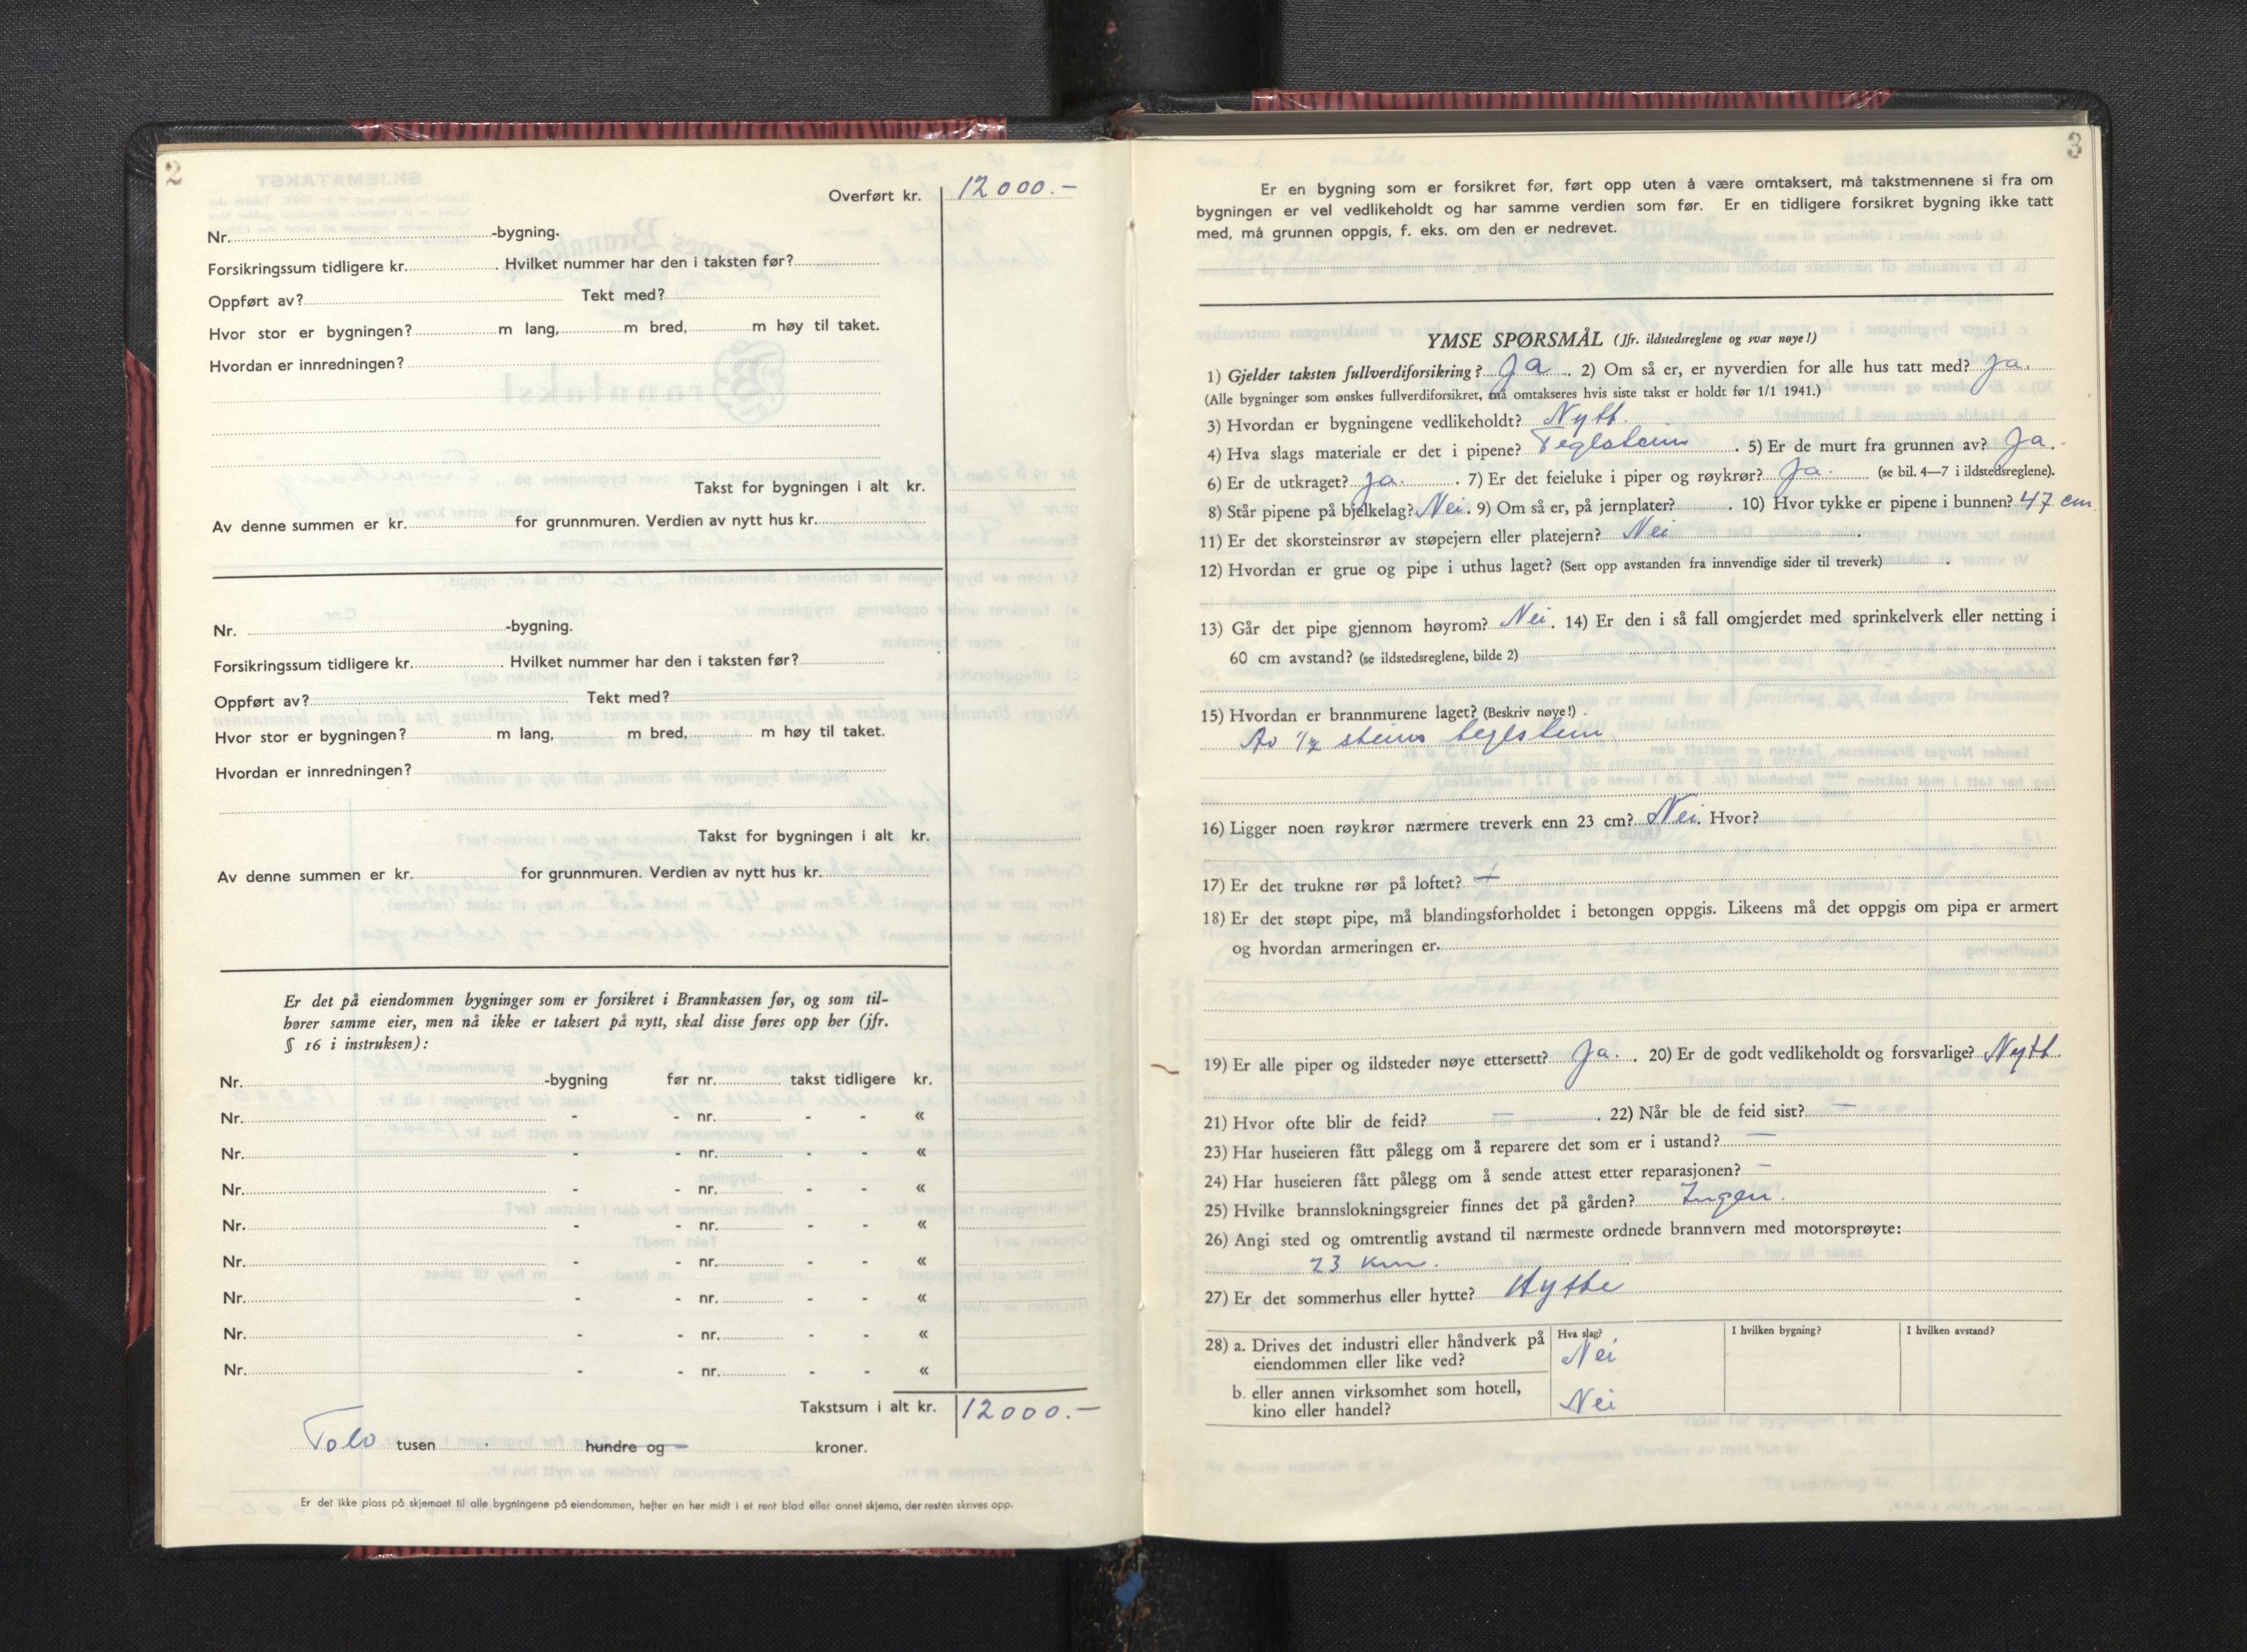 2
Overført kr. 12000.-
Nr. -bygning.
Forsikringssum tidligere kr. . Hvilket nummer har den i taksten før?
Oppført av? Tekt med?
Hvor stor er bygningen? m lang, m bred, m høy til taket.
Hvordan er innredningen?
Takst for bygningen i alt kr.
Av denne summen er kr. for grunnmuren. Verdien av nytt hus kr.
Nr. -bygning.
Forsikringssum tidligere kr. . Hvilket nummer har den i taksten før?
Oppført av? Tekt med?
Hvor stor er bygningen? m lang, m bred, m høy til taket.
Hvordan er innredningen?
Takst for bygningen i alt kr.
Av denne summen er kr. for grunnmuren. Verdien av nytt hus kr.
Er det på eiendommen bygninger som er forsikret i Brannkassen før, og som til-
hører samme eier, men nå ikke er taksert på nytt, skal disse føres opp her (jfr.
§ 16 i instruksen):
Nr. -bygning før nr. takst tidligere kr.
Nr. - - nr. - - «
Nr. - - nr. - - «
Nr. - - nr. - - «
Nr. - - nr. - - «
Nr. - - nr. - - «
Nr. - - nr. - - «
Nr. - - nr. - - «
Nr. - - nr. - - «
Takstsum i alt kr. 12000.-
Tolv tusen hundre og - kroner.
Er det ikke plass på skjemaet til alle bygningene på eiendommen, hefter en her midt i et rent blad eller annet skjema, der resten skrives opp.
3
Er en bygning som er forsikret før, ført opp uten å være omtaksert, må takstmennene si fra om
bygningen er vel vedlikeholdt og har samme verdien som før. Er en tidligere forsikret bygning ikke tatt
med, må grunnen oppgis, f. eks. om den er nedrevet.
YMSE SPØRSMÅL (Jfr. ildstedsreglene og svar nøye!)
1) Gjelder taksten fullverdiforsikring? Ja . 2) Om så er, er nyverdien for alle hus tatt med? Ja.
(Alle bygninger som ønskes fullverdiforsikret, må omtakseres hvis siste takst er holdt før 1/1 1941.)
3) Hvordan er bygningene vedlikeholdt? Nytt.
4) Hva slags materiale er det i pipene? Teglstein . 5) Er de murt fra grunnen av? Ja.
6) Er de utkraget? Ja. . 7) Er det feieluke i piper og røykrør? Ja. (se bil. 4—7 i ildstedsreglene).
8) Står pipene på bjelkelag? Nei. 9) Om så er, på jernplater? . 10) Hvor tykke er pipene i bunnen? 47 cm.
11) Er det skorsteinsrør av støpejern eller platejern? Nei .
12) Hvordan er grue og pipe i uthus laget? (Sett opp avstanden fra innvendige sider til treverk) .
13) Går det pipe gjennom høyrom? Nei. 14) Er den i så fall omgjerdet med sprinkelverk eller netting i
60 cm avstand? (se ildstedsreglene, bilde 2)
15) Hvordan er brannmurene laget? (Beskriv nøye!) .
Av 1/2 steins teglstein
16) Ligger noen røykrør nærmere treverk enn 23 cm? Nei. Hvor?
17) Er det trukne rør på loftet?
18) Er det støpt pipe, må blandingsforholdet i betongen oppgis. Likeens må det oppgis om pipa er armert
og hvordan armeringen er.
19) Er alle piper og ildsteder nøye ettersett? Ja. . 20) Er de godt vedlikeholdt og forsvarlige? Nytt.
21) Hvor ofte blir de feid? — . 22) Når ble de feid sist? —
23) Har huseieren fått pålegg om å reparere det som er i ustand? —
24) Har huseieren fått pålegg om å sende attest etter reparasjonen? —
25) Hvilke brannslokningsgreier finnes det på gården? Ingen.
26) Angi sted og omtrentlig avstand til nærmeste ordnede brannvern med motorsprøyte:
23 km.
27) Er det sommerhus eller hytte? Hytte
28) a. Drives det industri eller håndverk på Hva slag? I hvilken bygning? I hvilken avstand?
eiendommen eller like ved? Nei
b. eller annen virksomhet som hotell,
kino eller handel? Nei